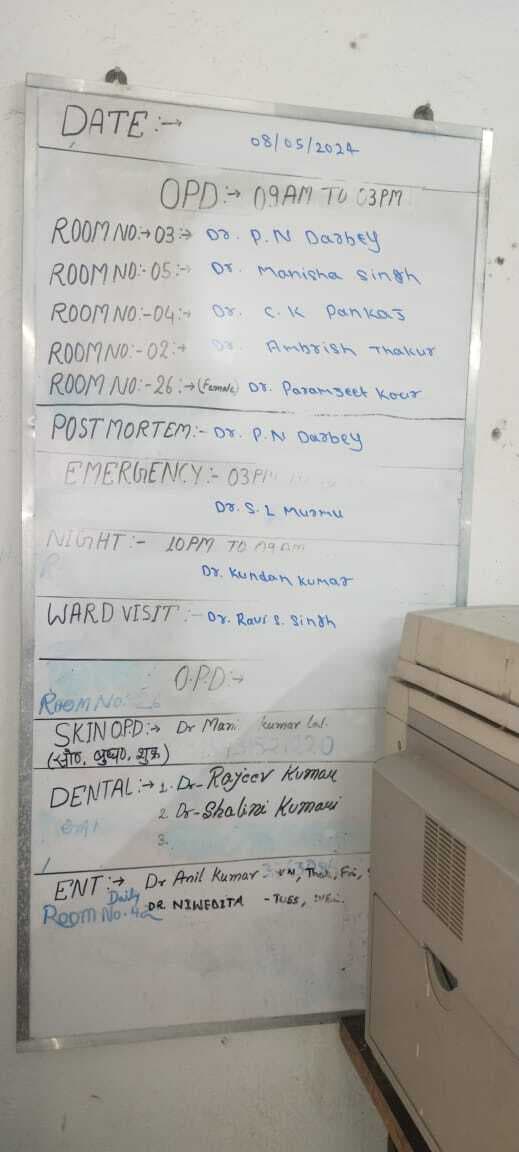 DATE :→ 08/05/2024
OPD :→ 09AM TO 03PM
ROOM NO:→ 03 :→ Dr. P.N Darbey
ROOM NO:- 05 :→ Dr. Manisha Singh
ROOM NO:- 04 :→ Dr. C.K Pankaj
ROOM NO:- 02 :→ Dr. Ambrish Thakur
ROOM NO:- 26 :→ (Female) Dr. Paramjeet Kour
POST MORTEM:- Dr. P.N Darbey
EMERGENCY :- 03PM
Dr. S.L Murmu
NIGHT :- 10PM TO 09AM
Dr. Kundan Kumar
WARD VISIT :- Dr. Ravi S. Singh
O.P.D :→
Room No:
SKIN OPD :→ Dr Mani kumar
(सोम, बुध, शुक्र)
DENTAL :→ 1. Dr- Rajeev Kumar
2. Dr- Shalini Kumari
3.
ENT :→ Dr Anil Kumar Fri,
Daily
Room No. 42 DR. NIWEDITA - TUES,